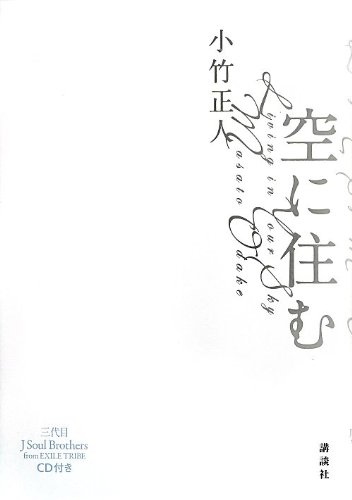 小竹正人
空に住む
Living in Your Sky
Masato Odake
三代目
J Soul Brothers
from EXILE TRIBE
CD付き
講談社